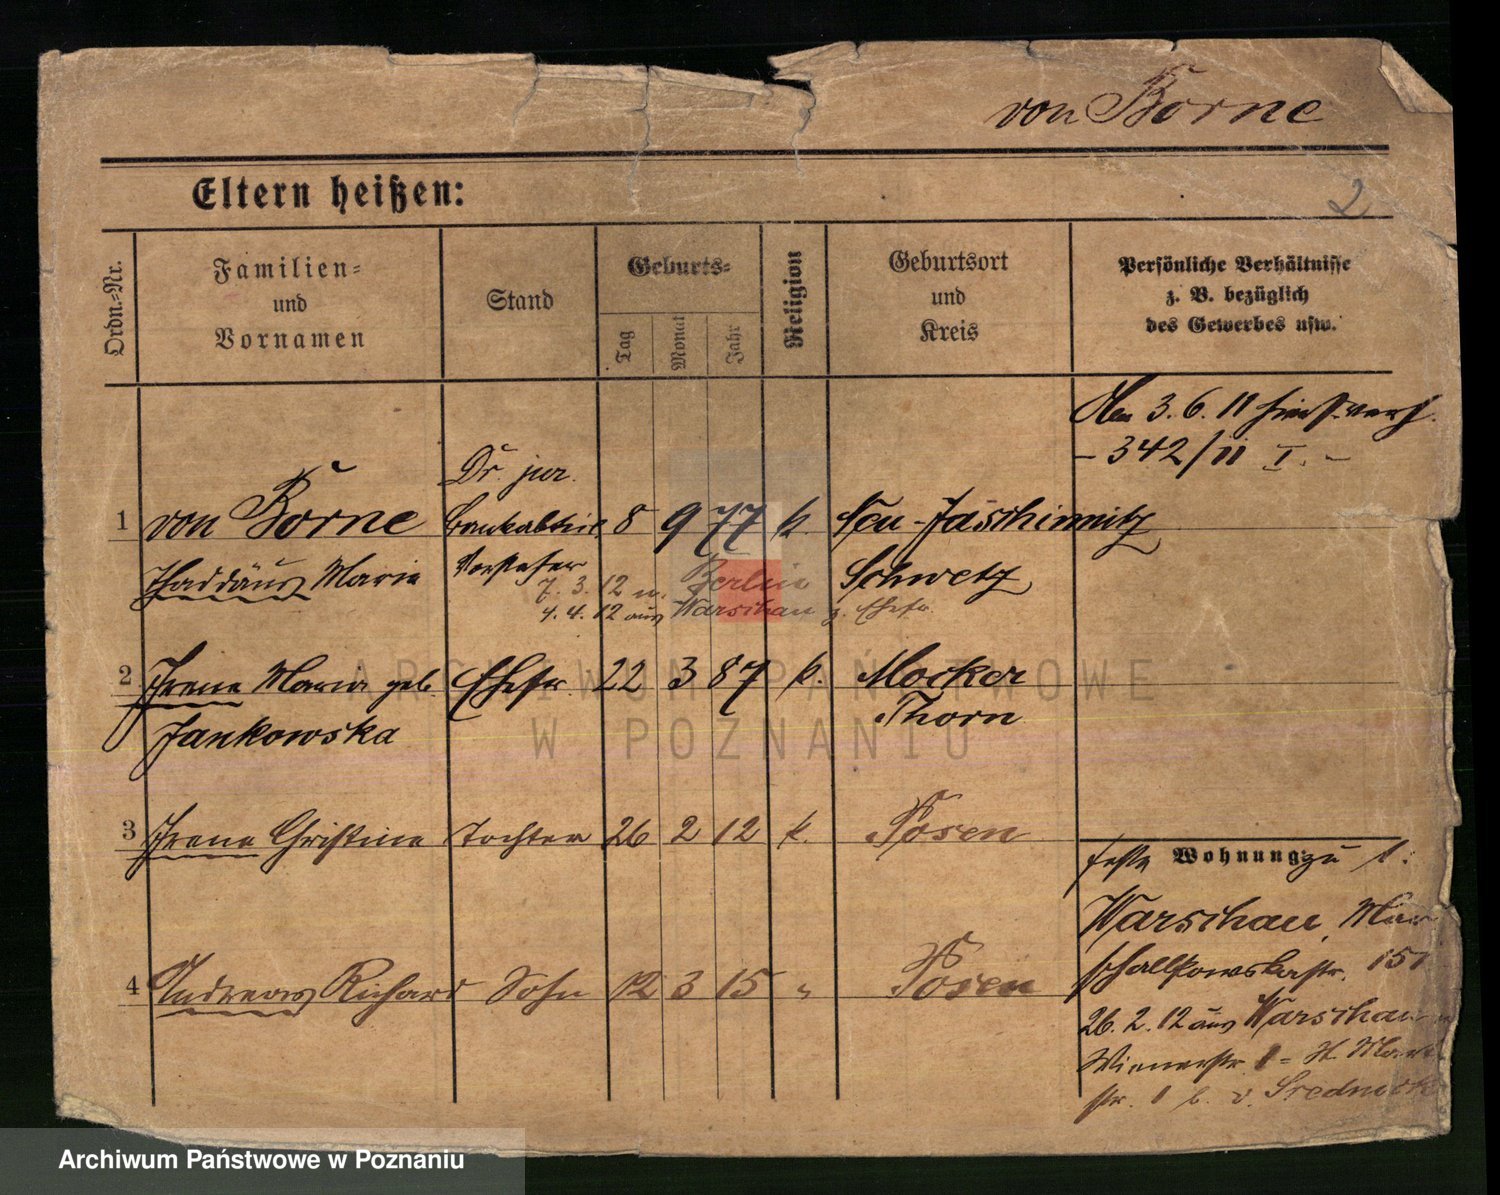 von Borne
Eltern heißen:
2
Ordn.-Nr.
Familien-
und
Vornamen
Stand
Geburts-
Tag
Monat
Jahr
Religion
Geburtsort
und
Kreis
Persönliche Verhältnisse
z. B. bezüglich
des Gewerbes usw.
3. 6. 11
- 342/11 I. -
Dr. jur.
1 von Borne 8 9 77 k. Neu-Jaschinnitz
Thaddäus Maria Vorsteher Schwetz
7. 3. 12 n. Berlin
4. 4. 12 aus Warschau z. Ehefr.
2 Irene Maria geb. Ehefr. 22 3 87 k. Mocker
Jankowska Thorn
3 Irene Christine Tochter 26 2 12 k. Posen
feste Wohnung zu 1:
Warschau, Mar
schallkowskastr. 151
4 Andreas Richard Sohn 12 3 15 " Posen
26. 2. 12 aus Warschau
Wienerstr. 1 = St. Mart
str. 1 b. v. Srednick
ARCHIWUM PAŃSTWOWE
W POZNANIU
Archiwum Państwowe w Poznaniu